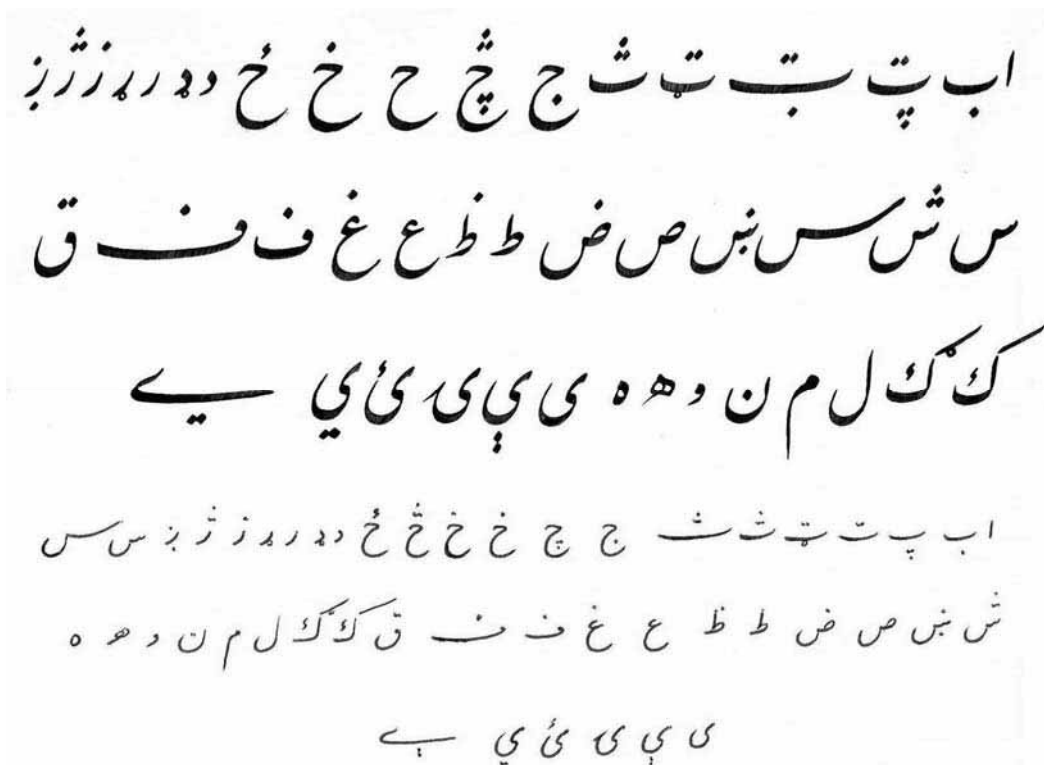 ا ب پ ت ټ ث ج چ څ ح خ ځ د ډ ر ړ ز ژ ږ
س ش س ښ ص ض ط ظ ع غ ف ف ق
ك ګ ل م ن و ه ه ی ې ۍ ئ ي ے
ا ب پ ت ټ ث ث ج چ خ خ څ ځ د ډ ر ړ ز ژ ږ س س
ش ښ ص ض ط ظ ع غ ف ف ق ك ګ ل م ن و ه ه
ی ې ۍ ئ ي ے